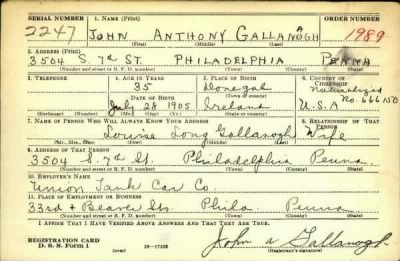 SERIAL NUMBER 1. NAME (Print) ORDER NUMBER
2247 JOHN ANTHONY GALLANAGH 1989
(First) (Middle) (Last)
2. ADDRESS (Print)
3504 S. 7th ST. PHILADELPHIA PENNA
(Number and street or R. F. D. number) (Town) (County) (State)
3. TELEPHONE 4. AGE IN YEARS 5. PLACE OF BIRTH 6. COUNTRY OF CITIZENSHIP
35 Donegal Naturalized
DATE OF BIRTH (Town or county) No. 666150
July 28 1905 Ireland U.S.A
(Exchange) (Number) (Mo.) (Day) (Yr.) (State or country)
7. NAME OF PERSON WHO WILL ALWAYS KNOW YOUR ADDRESS 8. RELATIONSHIP OF THAT PERSON
Louise Long Gallanogh Wife
(Mr., Mrs., Miss) (First) (Middle) (Last)
9. ADDRESS OF THAT PERSON
3504 S. 7th St. Philadelphia Penna.
(Number and street or R. F. D. number) (Town) (County) (State)
10. EMPLOYER'S NAME
Union Tank Car Co.
11. PLACE OF EMPLOYMENT OR BUSINESS
33rd + Beaver Sts. Phila. Penna
(Number and street or R. F. D. number) (Town) (County) (State)
I AFFIRM THAT I HAVE VERIFIED ABOVE ANSWERS AND THAT THEY ARE TRUE.
REGISTRATION CARD
D. S. S. Form 1 (over) 16—17105 John A Gallanogh
(Registrant's signature)